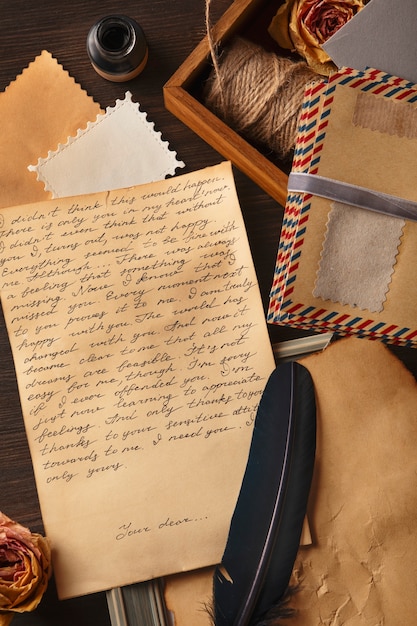 I didn't think this would happen.
There is only you in my heart now.
I didn't even think that without
you I, turns out, was not happy.
Everything seemed to be fine with
me although... There was always
a feeling that something was
missing. Now I know that I
missed you. Every moment next
to you proves it to me. I am truly
happy with you. The world has
changed with you. And now it
became clear to me that all my
dreams are feasible. It's not
easy for me, though. I'm sorry
if I ever offended you. I'm
just now learning to appreciate
feelings. And only thanks to you
thanks to your sensitive
towards to me. I need you.
only yours.
Your dear...